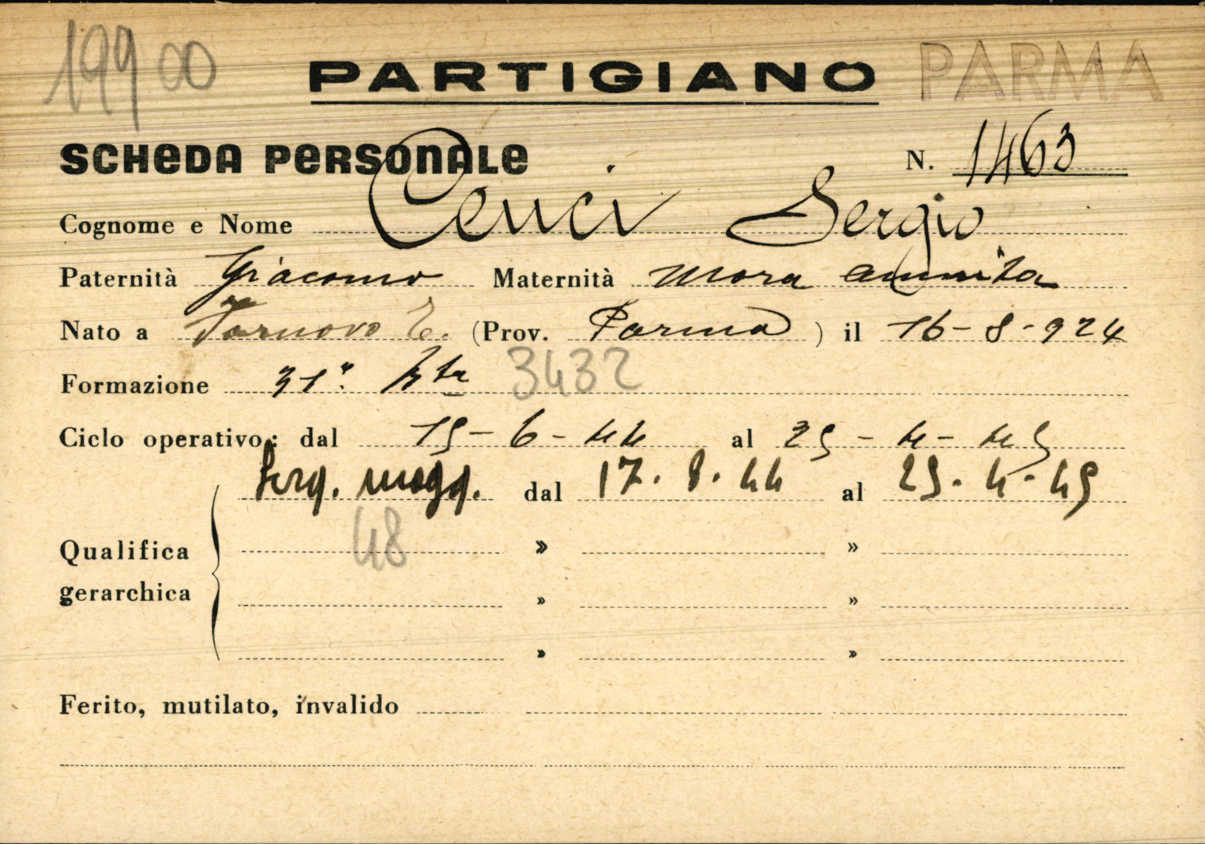 19900 PARTIGIANO PARMA
SCHEDA PERSONALE N. 1463
Cognome e Nome Cenci Sergio
Paternità Giacomo Maternità Mora Annita
Nato a Fornovo T. (Prov. Parma) il 16-8-924
Formazione 31ª Bta 3432
Ciclo operativo: dal 15-6-44 al 25-4-45
Serg. magg. dal 17.8.44 al 25-4-45
48 » »
Qualifica
gerarchica » »
» »
Ferito, mutilato, invalido